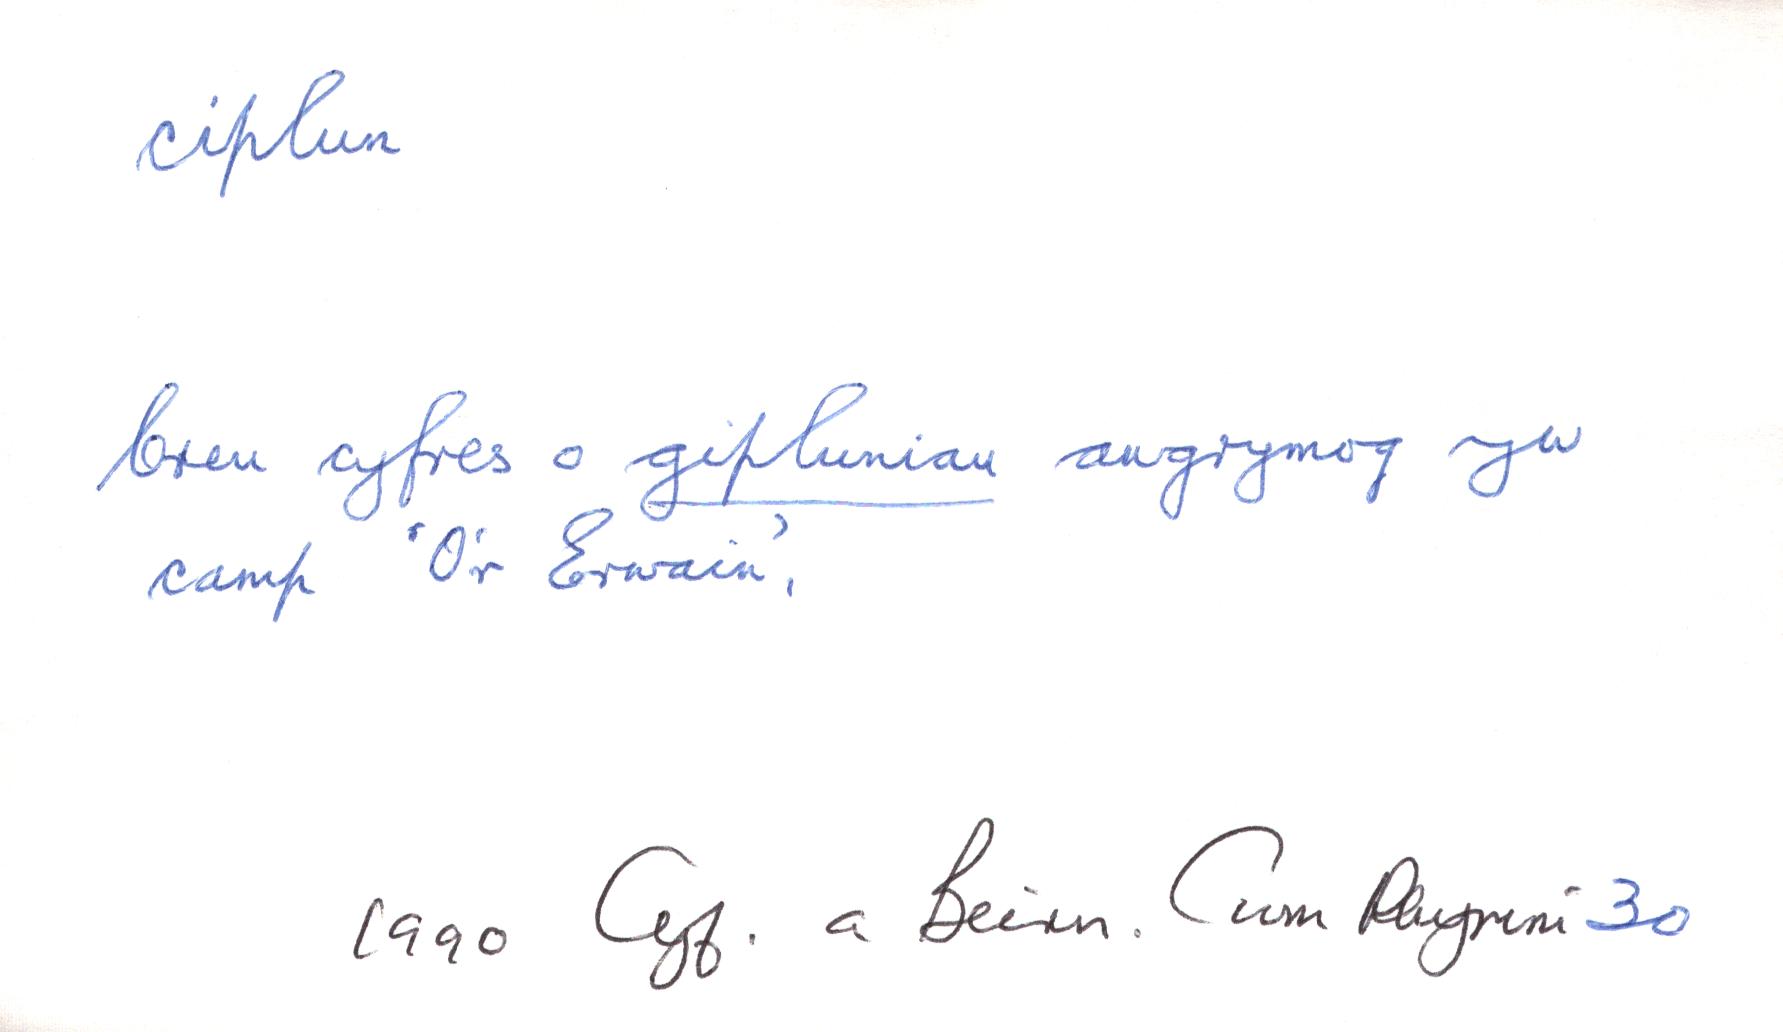 ciplun
creu cyfres o gipluniau angrymog yw
camp 'O'r Erwain'.
1990 Cyf. a Beirn. Cwm 30